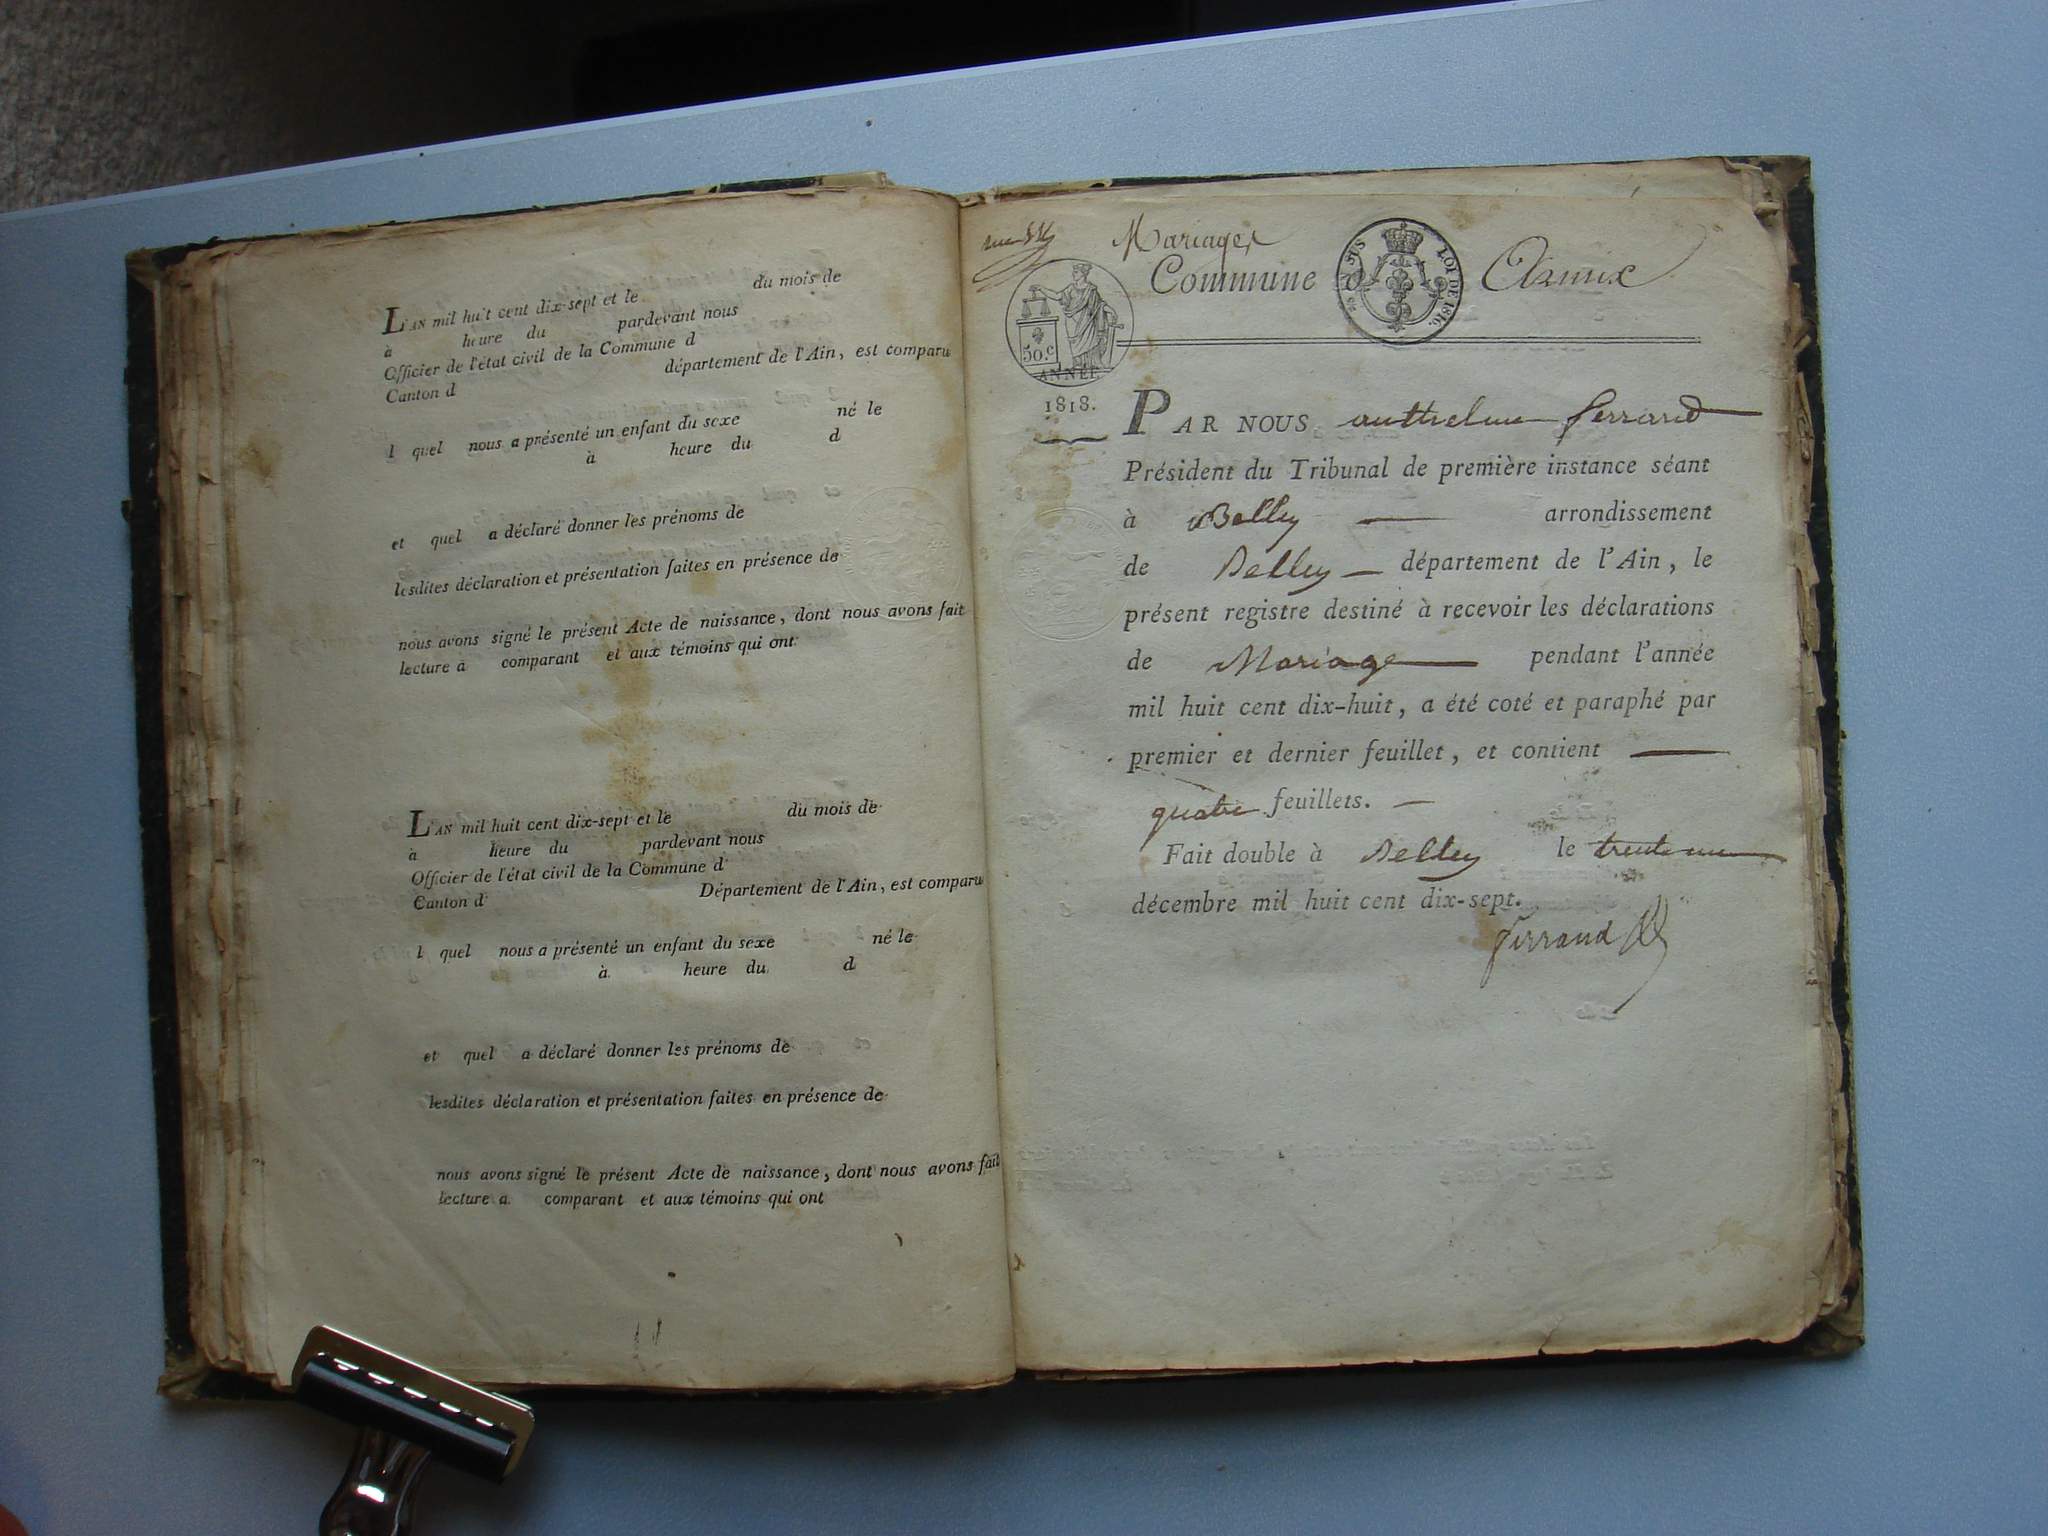 L'AN mil huit cent dix-sept et le du mois de
à heure du pardevant nous
Officier de l'état civil de la Commune d
Canton d département de l'Ain, est comparu
l quel nous a présenté un enfant du sexe né le
à heure du d
et quel a déclaré donner les prénoms de
lesdites déclaration et présentation faites en présence de
nous avons signé le présent Acte de naissance, dont nous avons fait
lecture à comparant et aux témoins qui ont
L'AN mil huit cent dix-sept et le du mois de
à heure du pardevant nous
Officier de l'état civil de la Commune d
Canton d Département de l'Ain, est comparu
l quel nous a présenté un enfant du sexe né le
à heure du d
et quel a déclaré donner les prénoms de
lesdites déclaration et présentation faites en présence de
nous avons signé le présent Acte de naissance, dont nous avons fait
lecture a comparant et aux témoins qui ont
Mariages
Commune d
LOI DE 1816.
50.c
ANNÉE
1818.
PAR NOUS anthelme ferrand
Président du Tribunal de première instance séant
à Belley arrondissement
de Belley département de l'Ain, le
présent registre destiné à recevoir les déclarations
de Mariage pendant l'année
mil huit cent dix-huit, a été coté et paraphé par
premier et dernier feuillet, et contient
quatre feuillets.
Fait double à Belley le trente un
décembre mil huit cent dix-sept.
ferrand